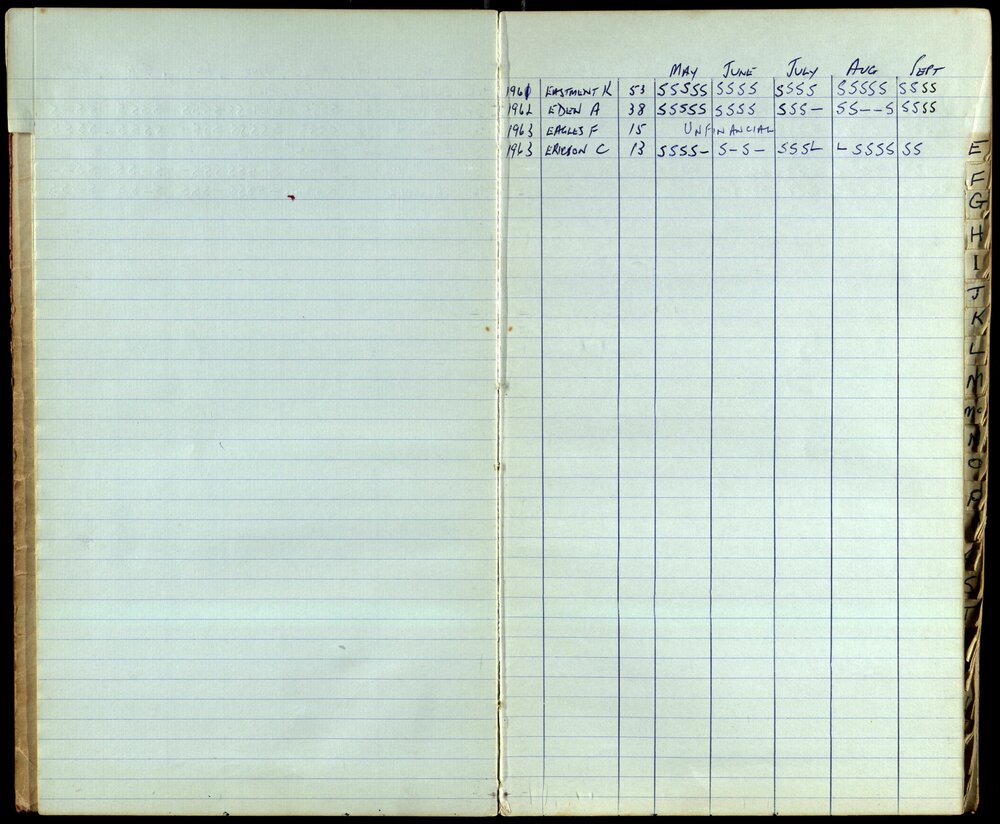 MAY JUNE JULY AUG SEPT
1961 EASTMENT K 53 SSSSS SSSS SSSS SSSSS SSSS
1962 EDEN A 38 SSSSS SSSS SSS- SS--S SSSS
1963 EAGLES F 15 UNFINANCIAL
1963 ERICSON C 13 SSSS- S-S- SSSL LSSSS SS
E
F
G
H
I
J
K
L
M
Mc
N
O
S